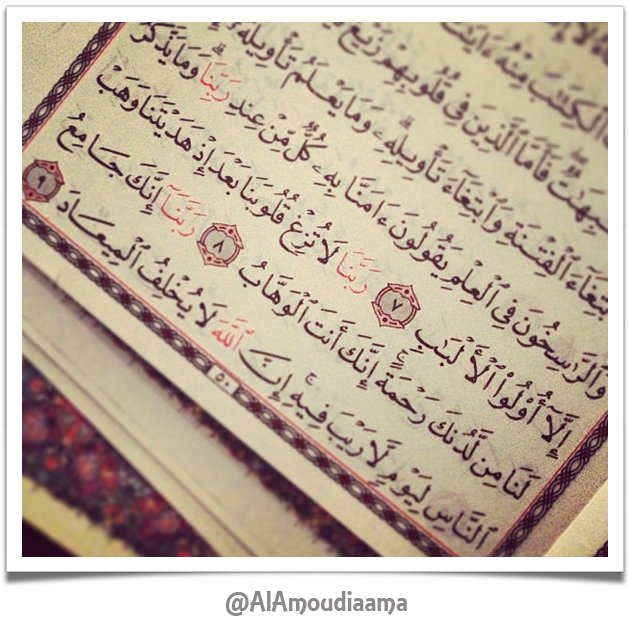 ٱلْكِتَٰبَ مِنْهُ ءَايَٰتٌ
فَأَمَّا ٱلَّذِينَ فِى قُلُوبِهِمْ زَيْغٌ
ٱبْتِغَآءَ ٱلْفِتْنَةِ وَٱبْتِغَآءَ تَأْوِيلِهِۦ وَمَا يَعْلَمُ تَأْوِيلَهُۥٓ
وَٱلرَّٰسِخُونَ فِى ٱلْعِلْمِ يَقُولُونَ ءَامَنَّا بِهِۦ كُلٌّ مِّنْ عِندِ رَبِّنَا وَمَا يَذَّكَّرُ
إِلَّآ أُو۟لُوا۟ ٱلْأَلْبَٰبِ ٧ رَبَّنَا لَا تُزِغْ قُلُوبَنَا بَعْدَ إِذْ هَدَيْتَنَا وَهَبْ
لَنَا مِن لَّدُنكَ رَحْمَةً إِنَّكَ أَنتَ ٱلْوَهَّابُ ٨ رَبَّنَآ إِنَّكَ جَامِعُ
ٱلنَّاسِ لِيَوْمٍ لَّا رَيْبَ فِيهِ إِنَّ ٱللَّهَ لَا يُخْلِفُ ٱلْمِيعَادَ ٩
٥٠
@AlAmoudiaama